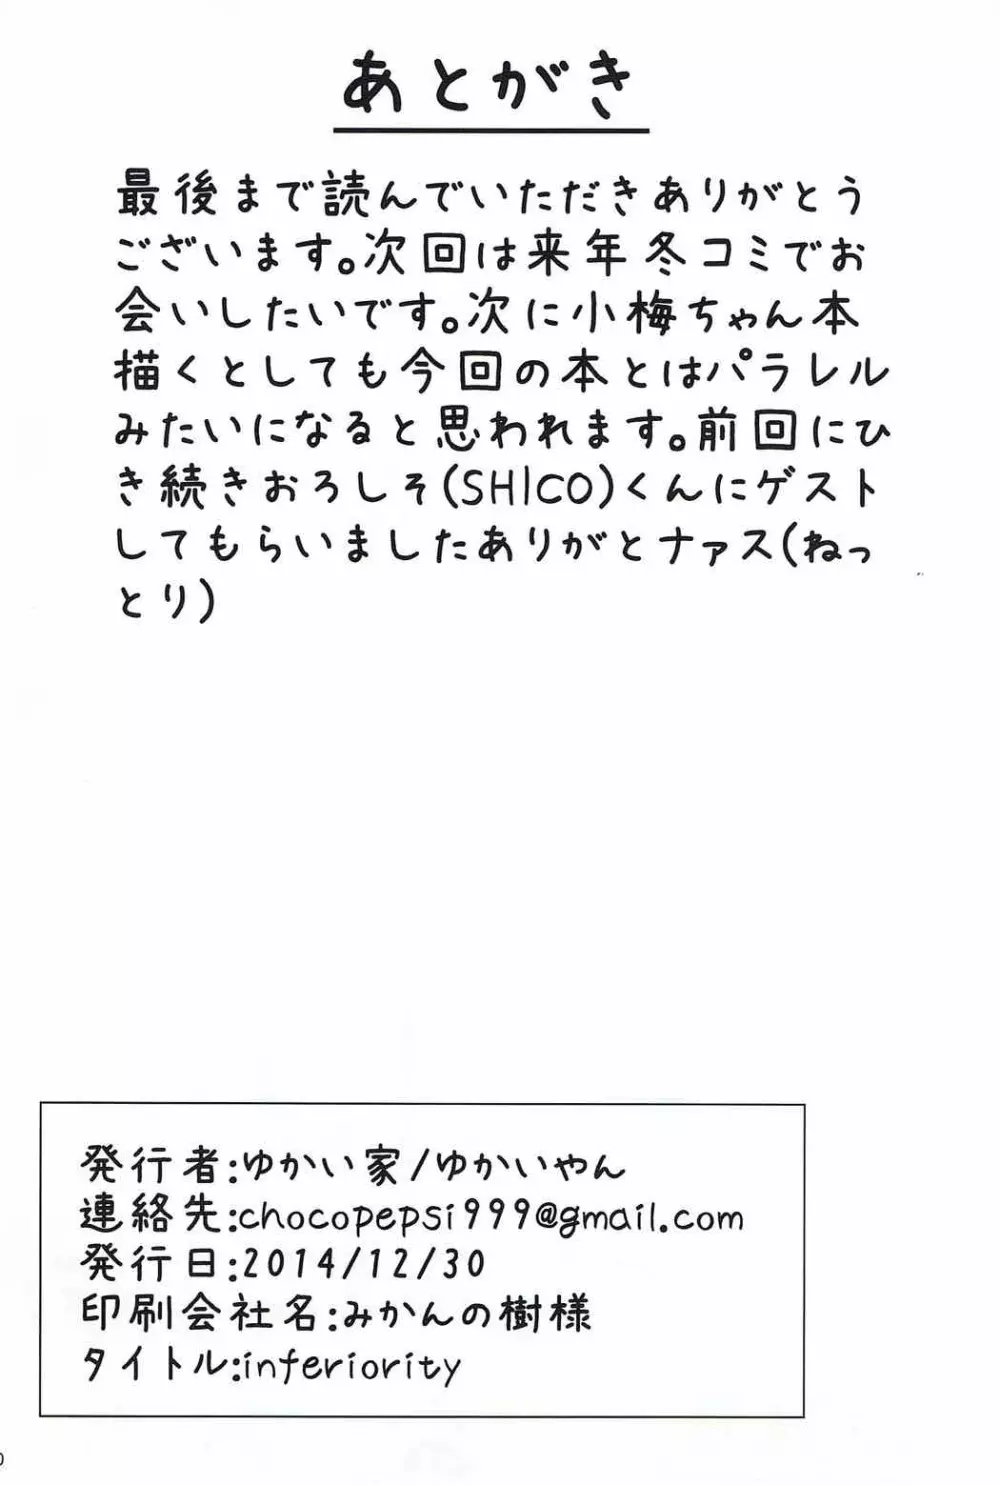 あとがき
最後まで読んでいただきありがとう
ございます。次回は来年冬コミでお
会いしたいです。次に小梅ちゃん本
描くとしても今回の本とはパラレル
みたいになると思われます。前回にひ
き続きおろしそ(SHICO)くんにゲスト
してもらいましたありがとナァス(ねっ
とり)
発行者:ゆかい家/ゆかいやん
連絡先:chocopepsi999@gmail.com
発行日:2014/12/30
印刷会社名:みかんの樹様
タイトル:inferiority